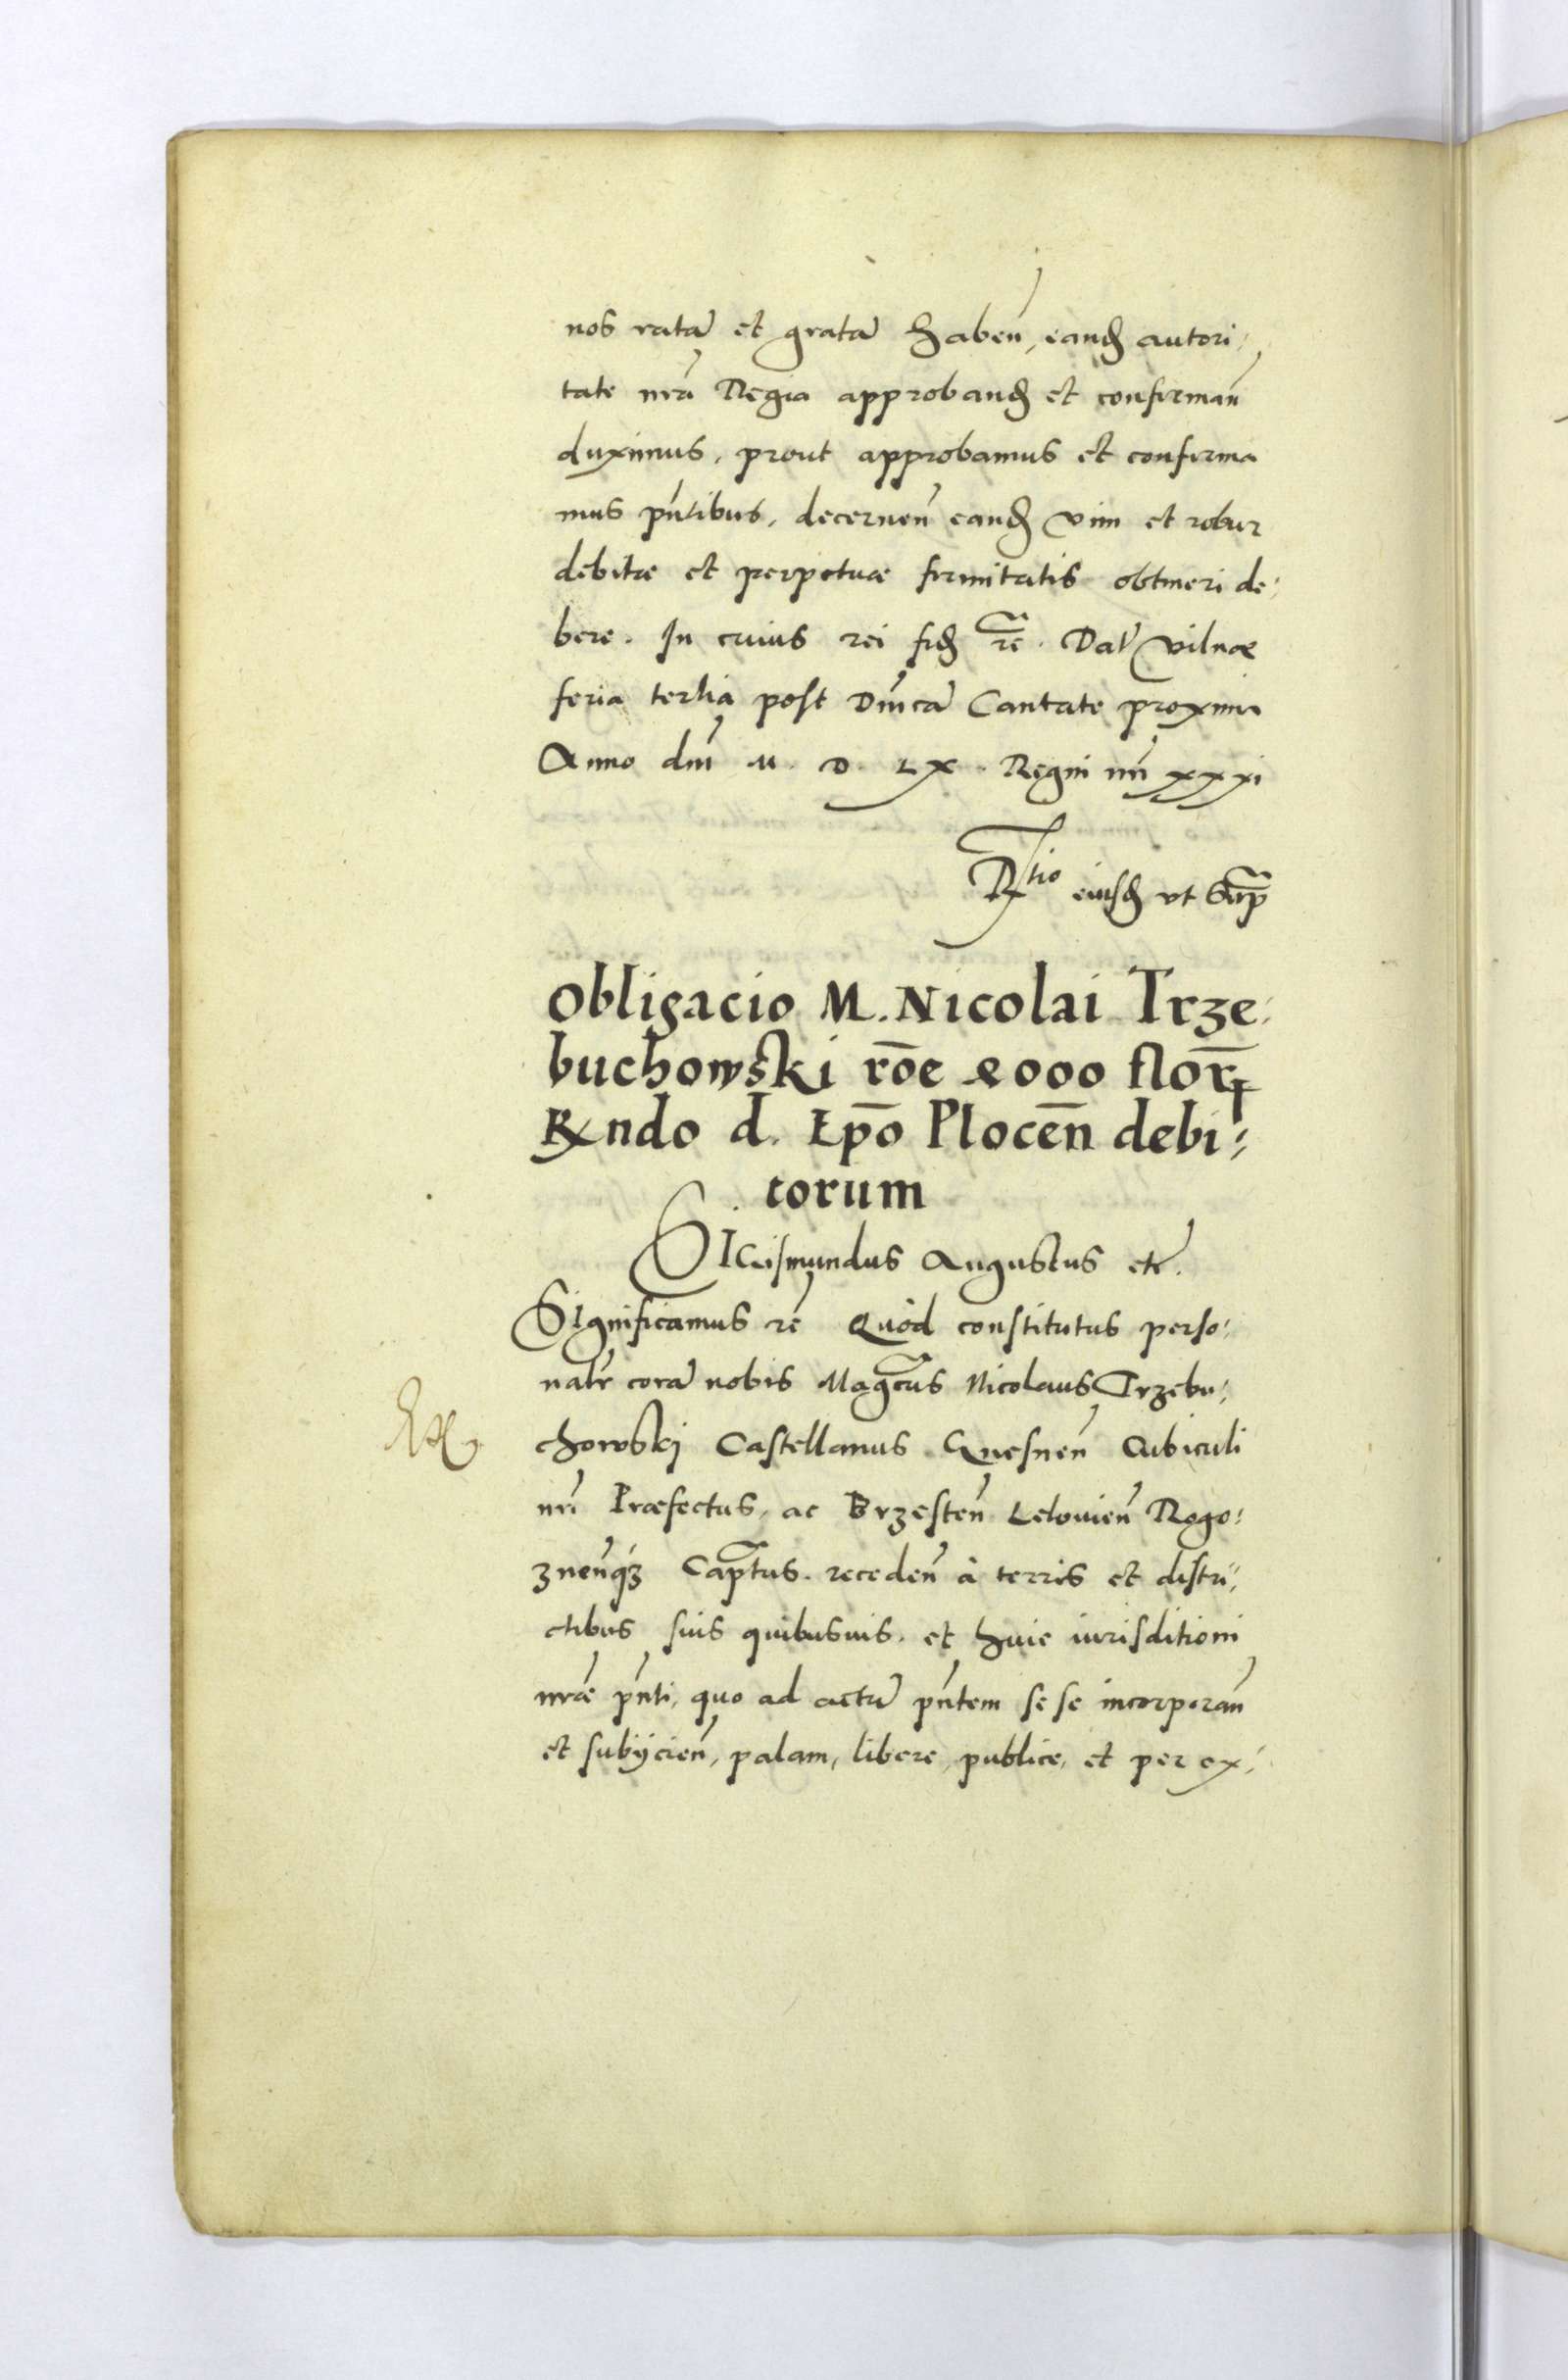 nos ratā et gratā haben̄, eand̄ autori,
tate nr̄a Regia approband̄ et confirman̄
duximus, prout approbamus et confirma
mus pn̄tibus, decernen̄ eand̄ vim et robur
debitæ et perpetuæ firmitatis obtineri de,
bere. In cuius rei fid̄ rē. Dat̄ Vilnæ
feria tertia post Dn̄icā Cantate proxima
Anno dn̄i M. D. LX. Regni nr̄i xxxi
Rtio eiusd̄ ut supr̄
Obligacio M. Nicolai Trze,
buchowski rōe 000 flor̄
Rndo d. Ep̄o Plocen̄ debi,
torum
SIGismundus Augustus etc̄.
Significamus rē Quòd constitutus perso,
nalr̄ corā nobis Magcus Nicolaus Trzebu,
chowskj Castellanus Gnesnen̄ Cubiculi
nr̄i Præfectus, ac Brzesten̄ Lelouien̄ Rogo,
znen̄q3 Captus. receden̄ à terris et distri,
ctibus suis quibusuis. et huic iurisditioni
nr̄æ pn̄ti, quo ad actū pn̄tem se se incorporan̄
et subijcien̄, palam, libere, publice, et per ex,